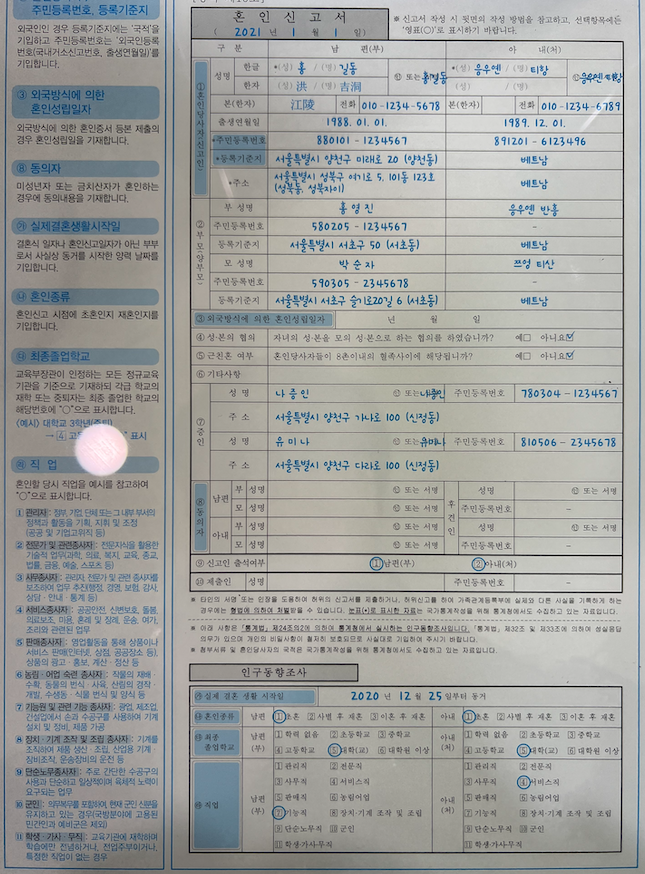 주민등록번호, 등록기준지
외국인인 경우 등록기준지에는 '국적'을
기입하고 주민등록번호는 '외국인등록
번호(국내거소신고번호, 출생연월일)'를
기입합니다.
③ 외국방식에 의한
혼인성립일자
외국방식에 의한 혼인증서 등본 제출의
경우 혼인성립일을 기재합니다.
⑧ 동의자
미성년자 또는 금치산자가 혼인하는
경우에 동의내용을 기재합니다.
실제결혼생활시작일
결혼식 일자나 혼인신고일자가 아닌 부부
로서 사실상 동거를 시작한 양력 날짜를
기입합니다.
혼인종류
혼인신고 시점에 초혼인지 재혼인지를
기입합니다.
최종졸업학교
교육부장관이 인정하는 모든 정규교육
기관을 기준으로 기재하되 각급 학교의
재학 또는 중퇴자는 최종 졸업한 학교의
해당번호에 "○"으로 표시합니다.
<예시> 대학교 3학년
→ 4 표시
직 업
혼인할 당시 직업을 예시를 참고하여
"○"으로 표시합니다.
1 관리자 : 정부, 기업, 단체 또는 그 내부 부서의
정책과 활동을 기획, 지휘 및 조정
(공공 및 기업고위직 등)
2 전문가 및 관련종사자 : 전문지식을 활용한
기술적 업무(과학, 의료, 복지, 교육, 종교,
법률, 금융, 예술, 스포츠 등)
3 사무종사자 : 관리자, 전문가 및 관련 종사자를
보조하여 업무 추진(행정, 경영, 보험, 감사,
상담 · 안내 · 통계 등)
4 서비스종사자 : 공공안전, 신변보호, 돌봄,
의료보조, 미용, 혼례 및 장례, 운송, 여가,
조리와 관련된 업무
5 판매종사자 : 영업활동을 통해 상품이나
서비스 판매(인터넷, 상점, 공공장소 등),
상품의 광고 · 홍보, 계산 · 정산 등
6 농림 · 어업 숙련 종사자 : 작물의 재배 ·
수확, 동물의 번식 · 사육, 산림의 경작 ·
개발, 수생동 · 식물 번식 및 양식 등
7 기능원 및 관련 기능 종사자 : 광업, 제조업,
건설업에서 손과 수공구를 사용하여 기계
설치 및 정비, 제품 가공
8 장치 · 기계 조작 및 조립 종사자 : 기계를
조작하여 제품 생산 · 조립, 산업용 기계 ·
장비조작, 운송장비의 운전 등
9 단순노무종사자 : 주로 간단한 수공구의
사용과 단순하고 일상적이며 육체적 노력이
요구되는 업무
10 군인 : 의무복무를 포함하여, 현재 군인 신분을
유지하고 있는 경우(국방분야에 고용된
민간인과 예비군은 제외)
11 학생 · 가사 · 무직 : 교육기관에 재학하며
학습에만 전념하거나, 전업주부이거나,
특정한 직업이 없는 경우
혼 인 신 고 서
( 2021 년 1 월 1 일 )
※ 신고서 작성 시 뒷면의 작성 방법을 참고하고, 선택항목에는
'영표(○)'로 표시하기 바랍니다.
구 분 남 편(부) 아 내(처)
① 혼인당사자(신고인)
성명 한글 *(성) 홍 / (명) 길동 ㊞ 또는 홍길동 *(성) 응우옌 / (명) 티항 ㊞ 응우옌 티항
한자 (성) 洪 / (명) 吉洞 (성) / (명)
본(한자) 江陵 전화 010-1234-5678 본(한자) 전화 010-1234-6789
출생연월일 1988. 01. 01. 1989. 12. 01.
*주민등록번호 880101 - 1234567 891201 - 6123496
*등록기준지 서울특별시 양천구 미래로 20 (양천동) 베트남
*주소 서울특별시 성북구 여기로 5, 101동 123호
(성북동, 성북자이) 베트남
② 부모(양부모)
부 성명 홍영진 응우옌 반흥
주민등록번호 580205 - 1234567 -
등록기준지 서울특별시 서초구 50 (서초동) 베트남
모 성명 박순자 쯔엉 티산
주민등록번호 590305 - 2345678 -
등록기준지 서울특별시 서초구 슬기로20길 6 (서초동) 베트남
③ 외국방식에 의한 혼인성립일자 년 월 일
④ 성·본의 협의 자녀의 성·본을 모의 성·본으로 하는 협의를 하였습니까? 예□ 아니요☑
⑤ 근친혼 여부 혼인당사자들이 8촌이내의 혈족사이에 해당됩니까? 예□ 아니요☑
⑥ 기타사항
⑦ 증인
성 명 나증인 ㊞ 또는 나증인 주민등록번호 780304 - 1234567
주 소 서울특별시 양천구 가나로 100 (신정동)
성 명 유미나 ㊞ 또는 유미나 주민등록번호 810506 - 2345678
주 소 서울특별시 양천구 다라로 100 (신정동)
⑧ 동의자
남편 부 성명 ㊞ 또는 서명 후견인 성명 ㊞ 또는 서명
모 성명 ㊞ 또는 서명 주민등록번호 -
아내 부 성명 ㊞ 또는 서명 성명 ㊞ 또는 서명
모 성명 ㊞ 또는 서명 주민등록번호 -
⑨ 신고인 출석여부 ① 남편(부) ② 아내(처)
⑩ 제출인 성명 주민등록번호 -
※ 타인의 서명 또는 인장을 도용하여 허위의 신고서를 제출하거나, 허위신고를 하여 가족관계등록부에 실제와 다른 사실을 기록하게 하는
경우에는 형법에 의하여 처벌받을 수 있습니다. 눈표(*)로 표시한 자료는 국가통계작성을 위해 통계청에서도 수집하고 있는 자료입니다.
※ 아래 사항은 「통계법」 제24조의2에 의하여 통계청에서 실시하는 인구동향조사입니다. 「통계법」 제32조 및 제33조에 의하여 성실응답
의무가 있으며 개인의 비밀사항이 철저히 보호되므로 사실대로 기입하여 주시기 바랍니다.
※ 첨부서류 및 혼인당사자의 국적은 국가통계작성을 위해 통계청에서도 수집하고 있는 자료입니다.
인구동향조사
실제 결혼 생활 시작일 2020 년 12 월 25 일부터 동거
혼인종류 남편(부) ①초혼 ②사별 후 재혼 ③이혼 후 재혼 아내(처) ①초혼 ②사별 후 재혼 ③이혼 후 재혼
최종졸업학교 남편(부) 1 학력 없음 2 초등학교 3 중학교 아내(처) 1 학력 없음 2 초등학교 3 중학교
4 고등학교 5 대학(교) 6 대학원 이상 4 고등학교 5 대학(교) 6 대학원 이상
직업 남편(부) 1 관리직 2 전문직 아내(처) 1 관리직 2 전문직
3 사무직 4 서비스직 3 사무직 4 서비스직
5 판매직 6 농림어업 5 판매직 6 농림어업
7 기능직 8 장치·기계 조작 및 조립 7 기능직 8 장치·기계 조작 및 조립
9 단순노무직 10 군인 9 단순노무직 10 군인
11 학생·가사·무직 11 학생·가사·무직